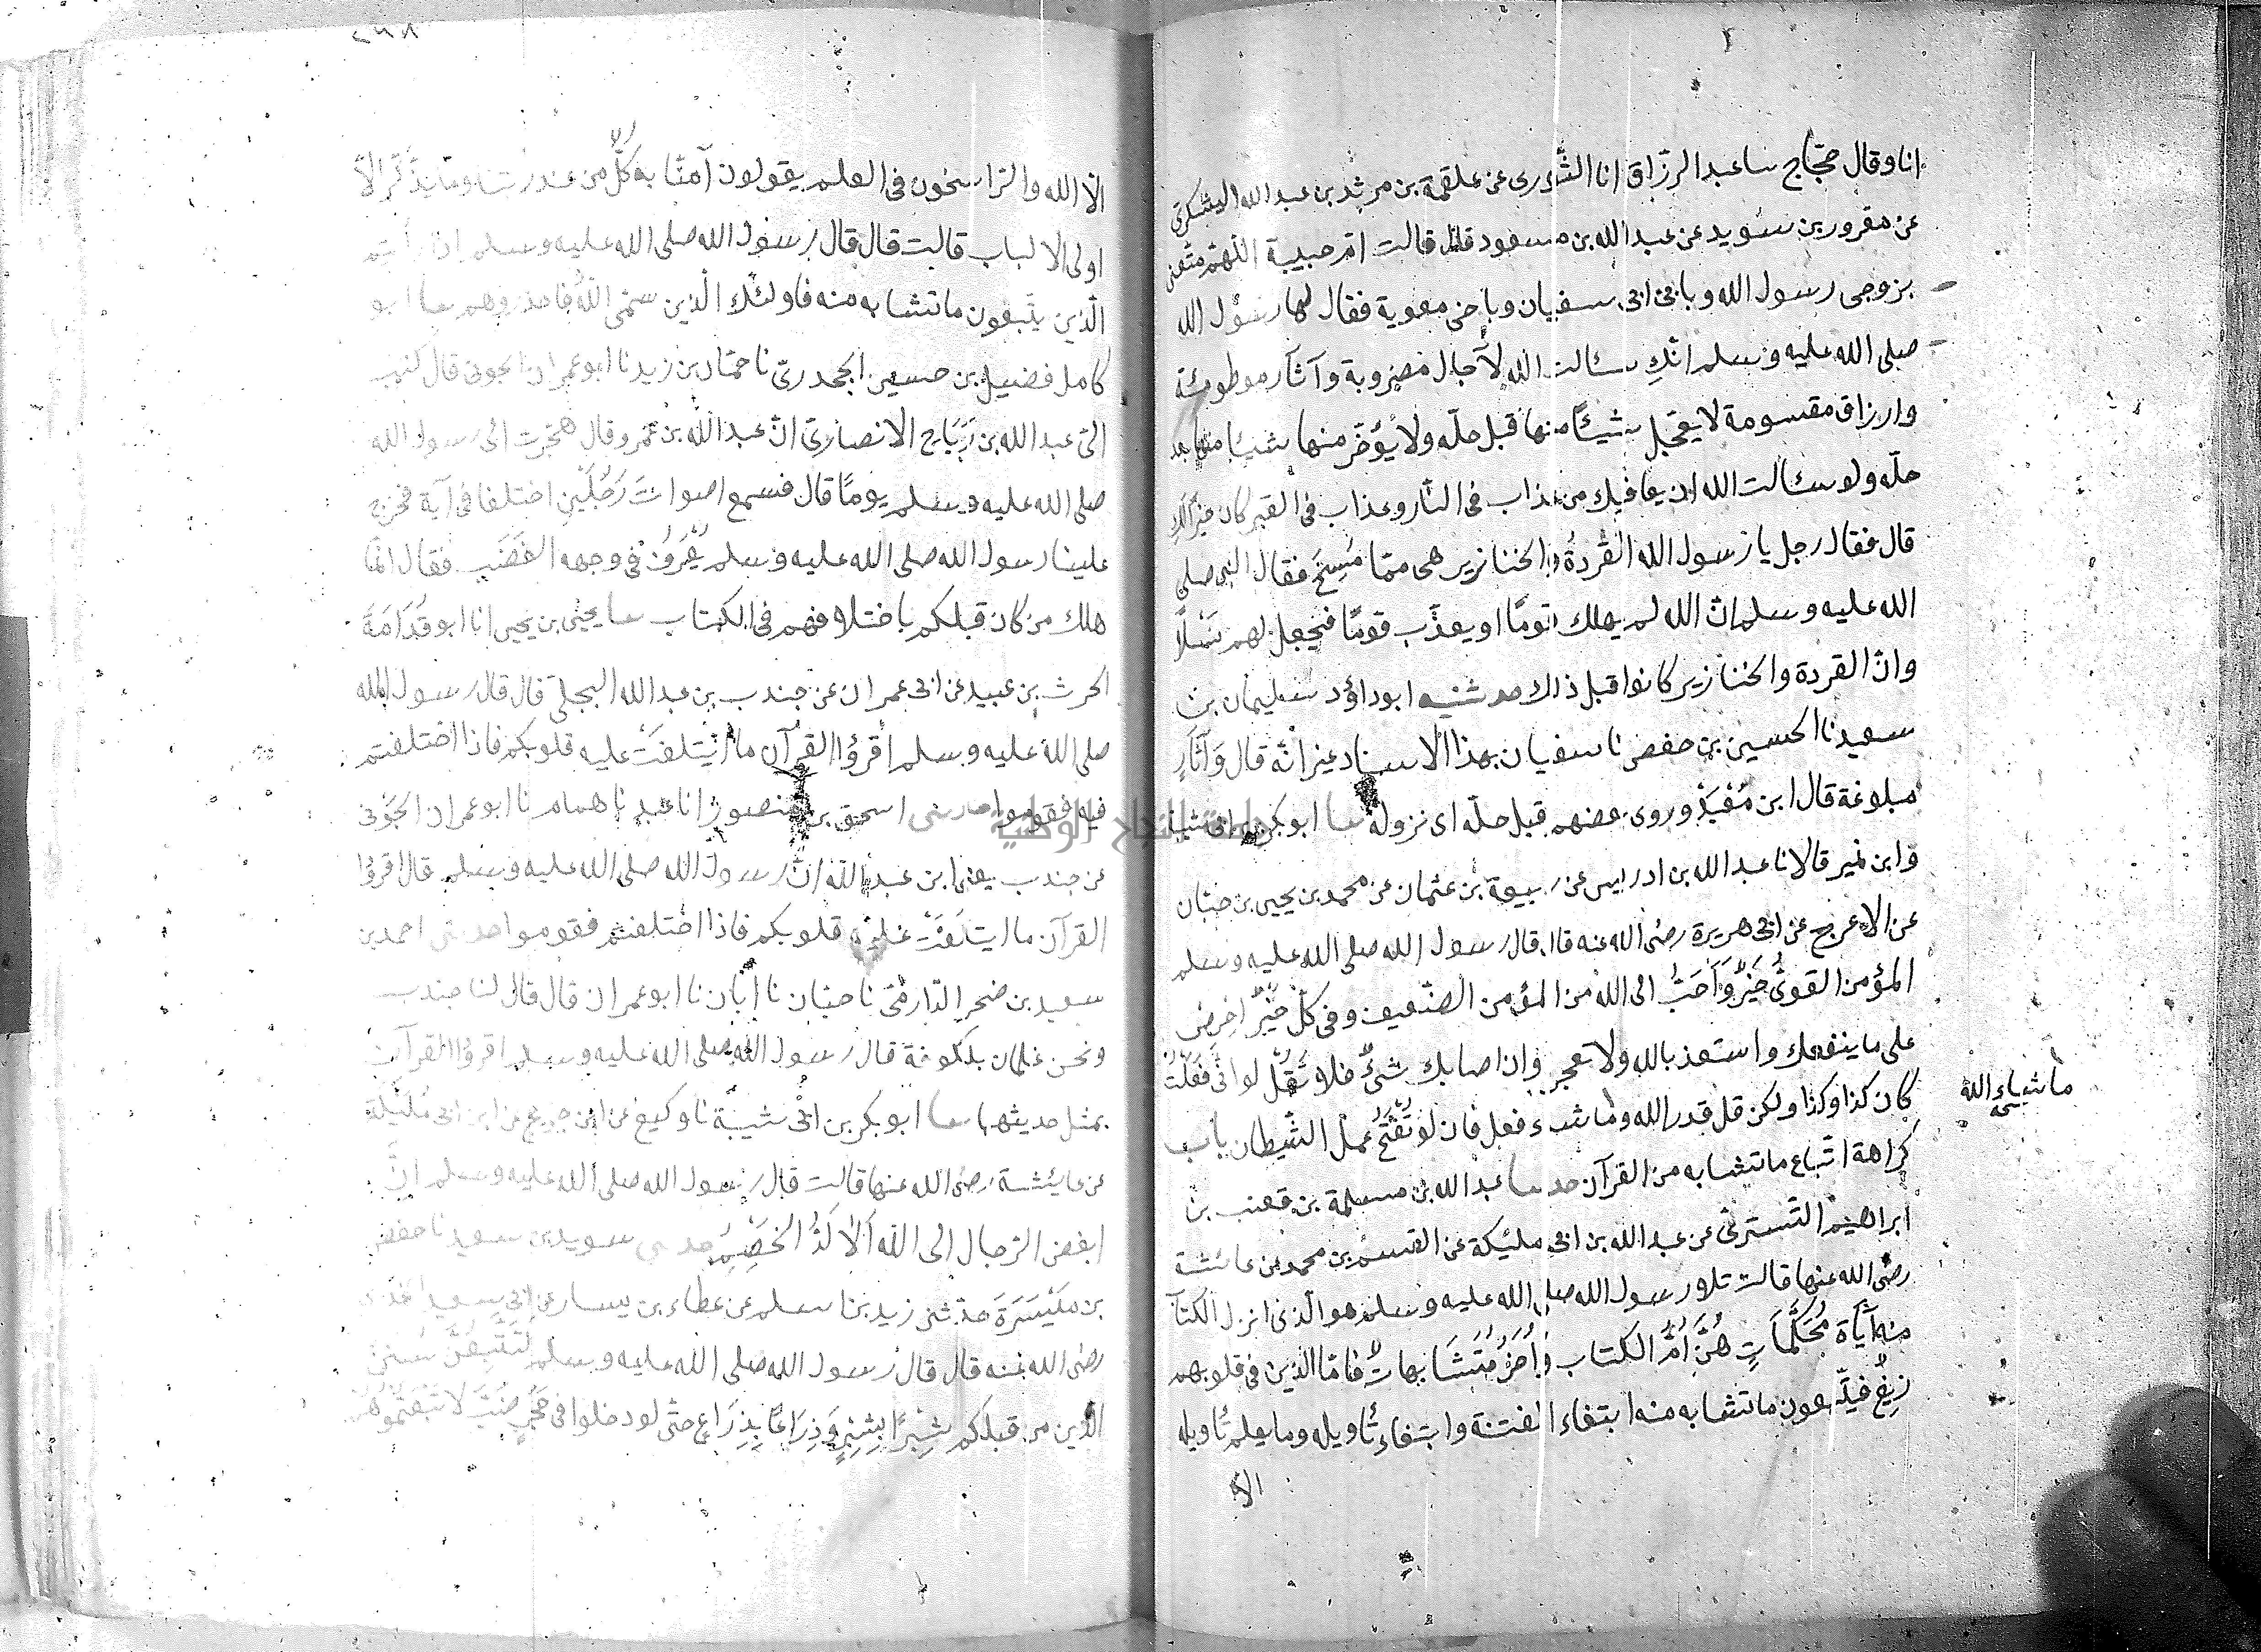 انا وقال حجّاج نا عبد الرزّاق انا الثّوري عن علقمة بن مرثد بن عبد الله اليشكري
عن مغرور بن سُويد عن عبد الله بن مسعود قال قالت امّ حبيبة اللّهمّ متّعنى
بزوجى رسول الله وبابى ابى سفيان وباخى معوية فقال لها رسول الله
صلى الله عليه وسلم انّكِ سئالت اللّه لآجال مضروبة وآثار موطوئة
وارزاق مقسومة لا يعجّل شيئًا منها قبل حلّه ولا يؤخّر منها شيئا بعد
حلّه ولو سئالت الله ان يعافيك من عذاب فى النّار وعذاب فى القبر كان خيرًا لك
قال فقال رجل يا رسول الله القردة والخنازير هى ممّا مُسِخَ فقال النبى صلى
الله عليه وسلم انّ الله لم يهلك قومًا او يعذّب قومًا فيجعل لهم نسْلًا
وانّ القردة والخنازير كانوا قبل ذالك حدثنيه ابو داؤد سليمان بن
سعيد نا الحسين بن حفص نا سفيان بهذا الاسناد غير انّه قال وَآثَارٍ
مبلوغة قال ابن مَعْبَدٍ وروى بعضهم قبل حلّه اى نزوله نا ابو بكر بن ابى شيبة
وابن نمير قالا نا عبد الله بن ادريس عن ربيعة بن عثمان عن محمد بن يحيى بن حبّان
عن الاعرج عن ابى هريرة رضى الله عنه قال قال رسول الله صلى الله عليه وسلم
المؤمن القوىُّ خيرٌ وَأَحَبُّ الى الله من المؤمن الضّعيف وفى كلّ خيرٌ احرِصْ
على ما ينفعك واستعذ بالله ولا تعجز وان اصابك شئٌ فلا تَقُلْ لو انّى فَعَلْتُ
كان كذا وكذا ولكن قل قدر الله وما شاء فعل فان لو تَفْتَحُ عمل الشّيطان باب
ما شاء اللّه
كراهة اتّباع ما تشابه من القرآن حدثنا عبد الله بن مسلمة بن قعنب بن
ابراهيم التّسترىّ عن عبد الله بن ابى مليكة عن القسم بن محمد عن عائشة
رضى الله عنها قالت تلا رسول الله صلى الله عليه وسلم هو الّذى انزل الكتاب
منه آيَاة مُحْكَمَاتٍ هُنَّ اُمُّ الكتاب وَاُخَرُ مُتَشَابهاتٌ فامّا الّذين فى قلوبهم
زيغٌ فيتّبعون ما تشابه منه ابتغاء الفتنة وابتغاء تأويله وما يعلم تأويله
الا
الّا الله والرّاسخون فى العلم يقولون آمنّا به كُلٌّ من عند ربّنا وما يذّكّر الّا
اولى الالباب قالت قال قال رسول الله صلى الله عليه وسلم اذا رأيتم
الّذين يتّبعون ما تشابه منه فاولئك الّذين سمّى اللّهُ فاحذروهم نا ابو
كامل فضيل بن حسين الجحدرىّ نا حمّاد بن زيد نا ابو عمران الجونى قال كتب
الىّ عبد الله بن رَبَاح الانصارىّ انّ عبد اللّه بن عمرو قال هجّرت الى رسول الله
صلى الله عليه وسلم يومًا قال فسمع اصواتَ رَجُلَيْنِ اختلفا فى آية فخرج
علينا رسول الله صلى الله عليه وسلم يُعْرَفُ فى وجهه الغَضَب فقال انّما
هلك من كان قبلكم باختلافهم فى الكتاب نا يحيى بن يحيى انا ابو قُدَامَةَ
الحرث بن عبيد عن ابى عمران عن جندب بن عبد الله البجلىّ قال قال رسول الله
صلى اللّه عليه وسلم أقرؤا القرآن ما ائْتَلَفَتْ عليه قلوبكم فاذا اختلفتم
فيه فقوموا حدثنى اسحق بن منصور انا عبد نا همام نا ابو عمران الجَوْنى
عن جندب يعنى ابن عبد اللّه انّ رسول الله صلى الله عليه وسلم قال اقرؤا
القرآن ما ايتَلَفَتْ عليه قلوبكم فاذا اختلفتم فقوموا حدثنى احمد بن
سعيد بن صخر الدّارمىّ نا حبّان نا أبان نا ابو عمران قال قال لنا جندب
ونحن غلمان بلكوفة قال رسول اللّه صلى الله عليه وسلم اقرؤا القرآن
بمثل حديثهما نا ابو بكر بن ابى شيبة نا وكيع عن ابن جريج عن ابن ابى مُلَيْكة
عن عايئشة رضى الله عنها قالت قال رسول الله صلى الله عليه وسلم انَّ
ابغض الرّجال الى اللّه اَلْاَلَدُّ الخَصِمُ حدثنى سويد بن سعيد نا حفص
بن مَيْسَرَةَ حدّثنى زيد بن اسلم عن عطاء بن يسار عن ابى سعيد الخدرى
رضى الله عنه قال قال رسول الله صلى الله عليه وسلم لَتَتَّبِعُنَّ سُننَ
الّذين من قبلكم شِبْرًا بِشِبْرٍ وَذِرَاعًا بِذِرَاعٍ حتّى لو دخلوا فى حَجُرِ ضَبٍّ لاتّبعتموهم
جامعة النجاح الوطنية